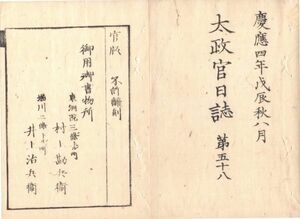 慶應四年戊辰秋八月
太政官日誌 第五十八
官版 不許翻刻
御用御書物所
東洞院三條上ル町
村上勘兵衞
堀川二條下ル町
井上治兵衞